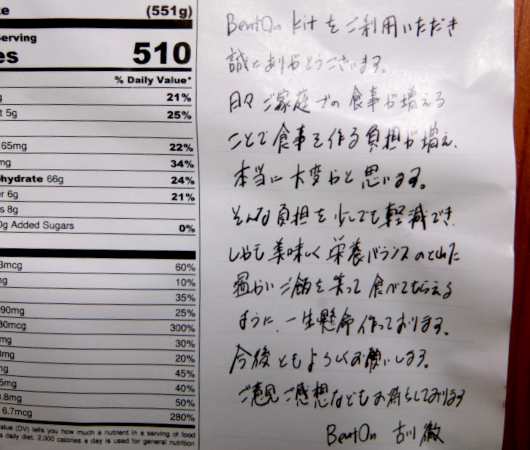 (551g)
erving
es 510
% Daily Value*
21%
t 5g 25%
65mg 22%
mg 34%
ohydrate 66g 24%
er 6g 21%
s 8g
0g Added Sugars 0%
3mcg 60%
mg 10%
35%
90mg 25%
80mcg 300%
mg 30%
3mg 20%
mg 45%
5mg 40%
.8mg 50%
6.7mcg 280%
alue (DV) tells you how much a nutrient in a serving of food
a daily diet. 2,000 calories a day is used for general nutrition
BentOn Kit をご利用いただき
誠にありがとうございます。
日々ご家庭での食事が増える
ことで食事を作る負担が増え、
本当に大変かと思います。
そんな負担を少しでも軽減でき
しかも美味しく栄養バランスのとれた
温かいご飯を笑って食べてもらえる
ように、一生懸命作っております。
今後ともよろしくお願いします。
ご意見ご感想などもお待ちしております
BentOn 古川 徹